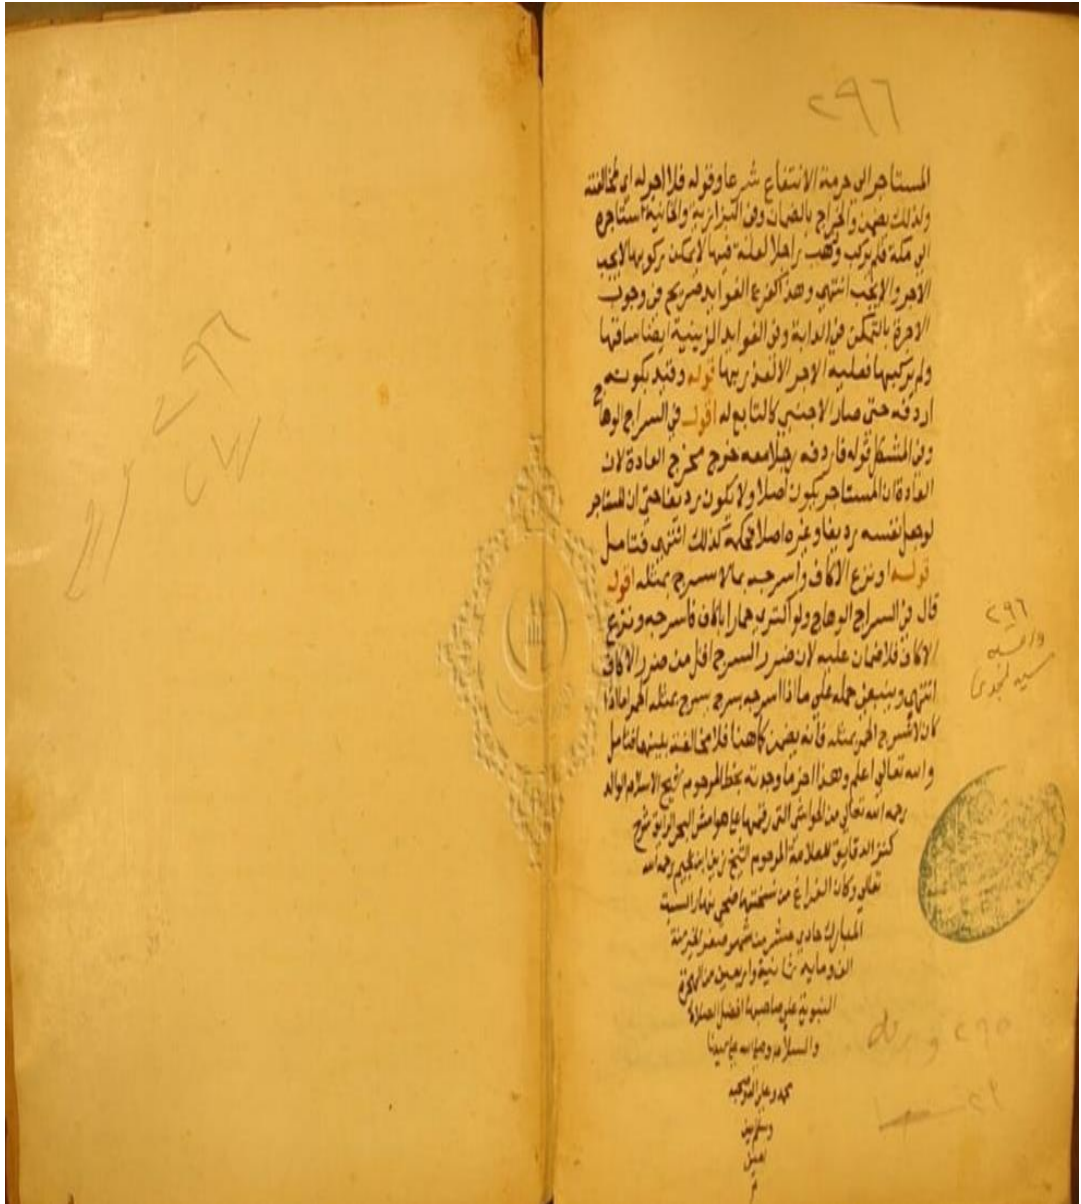 ٢٩٦
المستاجر الى حرمة الانتفاع شرعا وقوله فلا اجر له اي لمخالفته
ولذلك يضمن والخراج بالضمان وفي البزازية والخانية استاجره
الى مكة فلم يركب وذهب راجلا لعلة فيها لا يمكن ركوبها لا يجب
الاجر والا يجب انتهى وهذا كفرع الفوايد صريح في وجوب
الاجرة بالتمكن في الدابة وفي الفوايد الزينية ايضا ساقها
ولم يركبها فعليه الاجر الا لعذر بها قوله وقيد بكونه
اردفه حتى صار الاجنبي كالتابع له اقول في السراج الوهاج
وفي المشكل قوله فاردفه رجلا معه خرج مخرج العادة لان
العادة ان المستاجر يكون اصلا ولا يكون رديفا حتى ان المستاجر
لو جعل نفسه رديفا وغيره اصلا فحكمه كذلك انتهى فتامل
قوله او نزع الاكاف واسرجه بما لا يسرج بمثله اقول
قال في السراج الوهاج ولو اكترى حمارا باكاف فاسرجه ونزع
الاكاف فلا ضمان عليه لان ضرر السرج اقل من ضرر الاكاف
انتهى وينبغي حمله على ما اذا اسرجه بسرج يسرج بمثله الحمر اما اذا
كان لا تسرج الحمر بمثله فانه يضمن كما هنا فلا مخالفة بينهما فتامل
والله تعالى اعلم وهذا اخر ما وجدته بخط المرحوم شيخ الاسلام الوالد
رحمه الله تعالى من الحواشي التي رقمها على هوامش البحر الرايق شرح
كنز الدقايق للعلامة المرحوم الشيخ زين ابن نجيم رحمه الله
تعالى وكان الفراغ من نسختها ضحى نهار السبت
المبارك حادي عشرين شهر صفر الخير سنة
الف وماية ثمانية واربعين من الهجرة
النبوية على صاحبها افضل الصلاة
والسلام وصلى الله على سيدنا
محمد وعلى اله وصحبه
وسلم
امين
م
٢٩٦
٢٩٦
٢٩٥